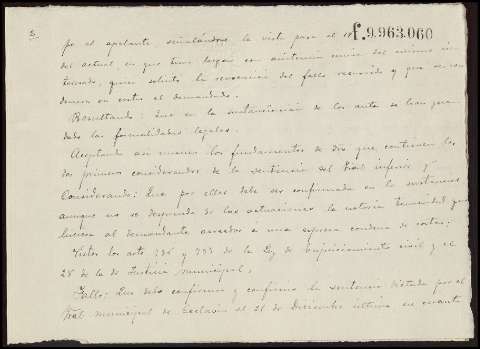 3
f.9.963.060
por el apelante señalándose la vista para el
del actual, en que tuvo lugar con asistencia
teresado, quien solicitó la revocación del fallo recurrido y que se con
denara en costas al demandado.
Resultando: Que en la sustanciación de los autos se han guar
dado las formalidades legales.
Aceptando asi mismo los fundamentos de dro que contienen los
dos primeros considerandos de la sentencia del Tral inferior y
Considerando: Que por ellos debe ser confirmada en la sustancia
aunque no se desprenda de las actuaciones la notoria temeridad que
hiciera al demandante acreedor a una expresa condena de costas;
Vistos los arts 736 y 733 de la Ley de enjuiciamiento civil y el
28 de la de Justicia municipal,
Fallo: Que debo confirmar y confirmo la sentencia dictada por el
Tral municipal de en 21 de Diciembre último en cuanto